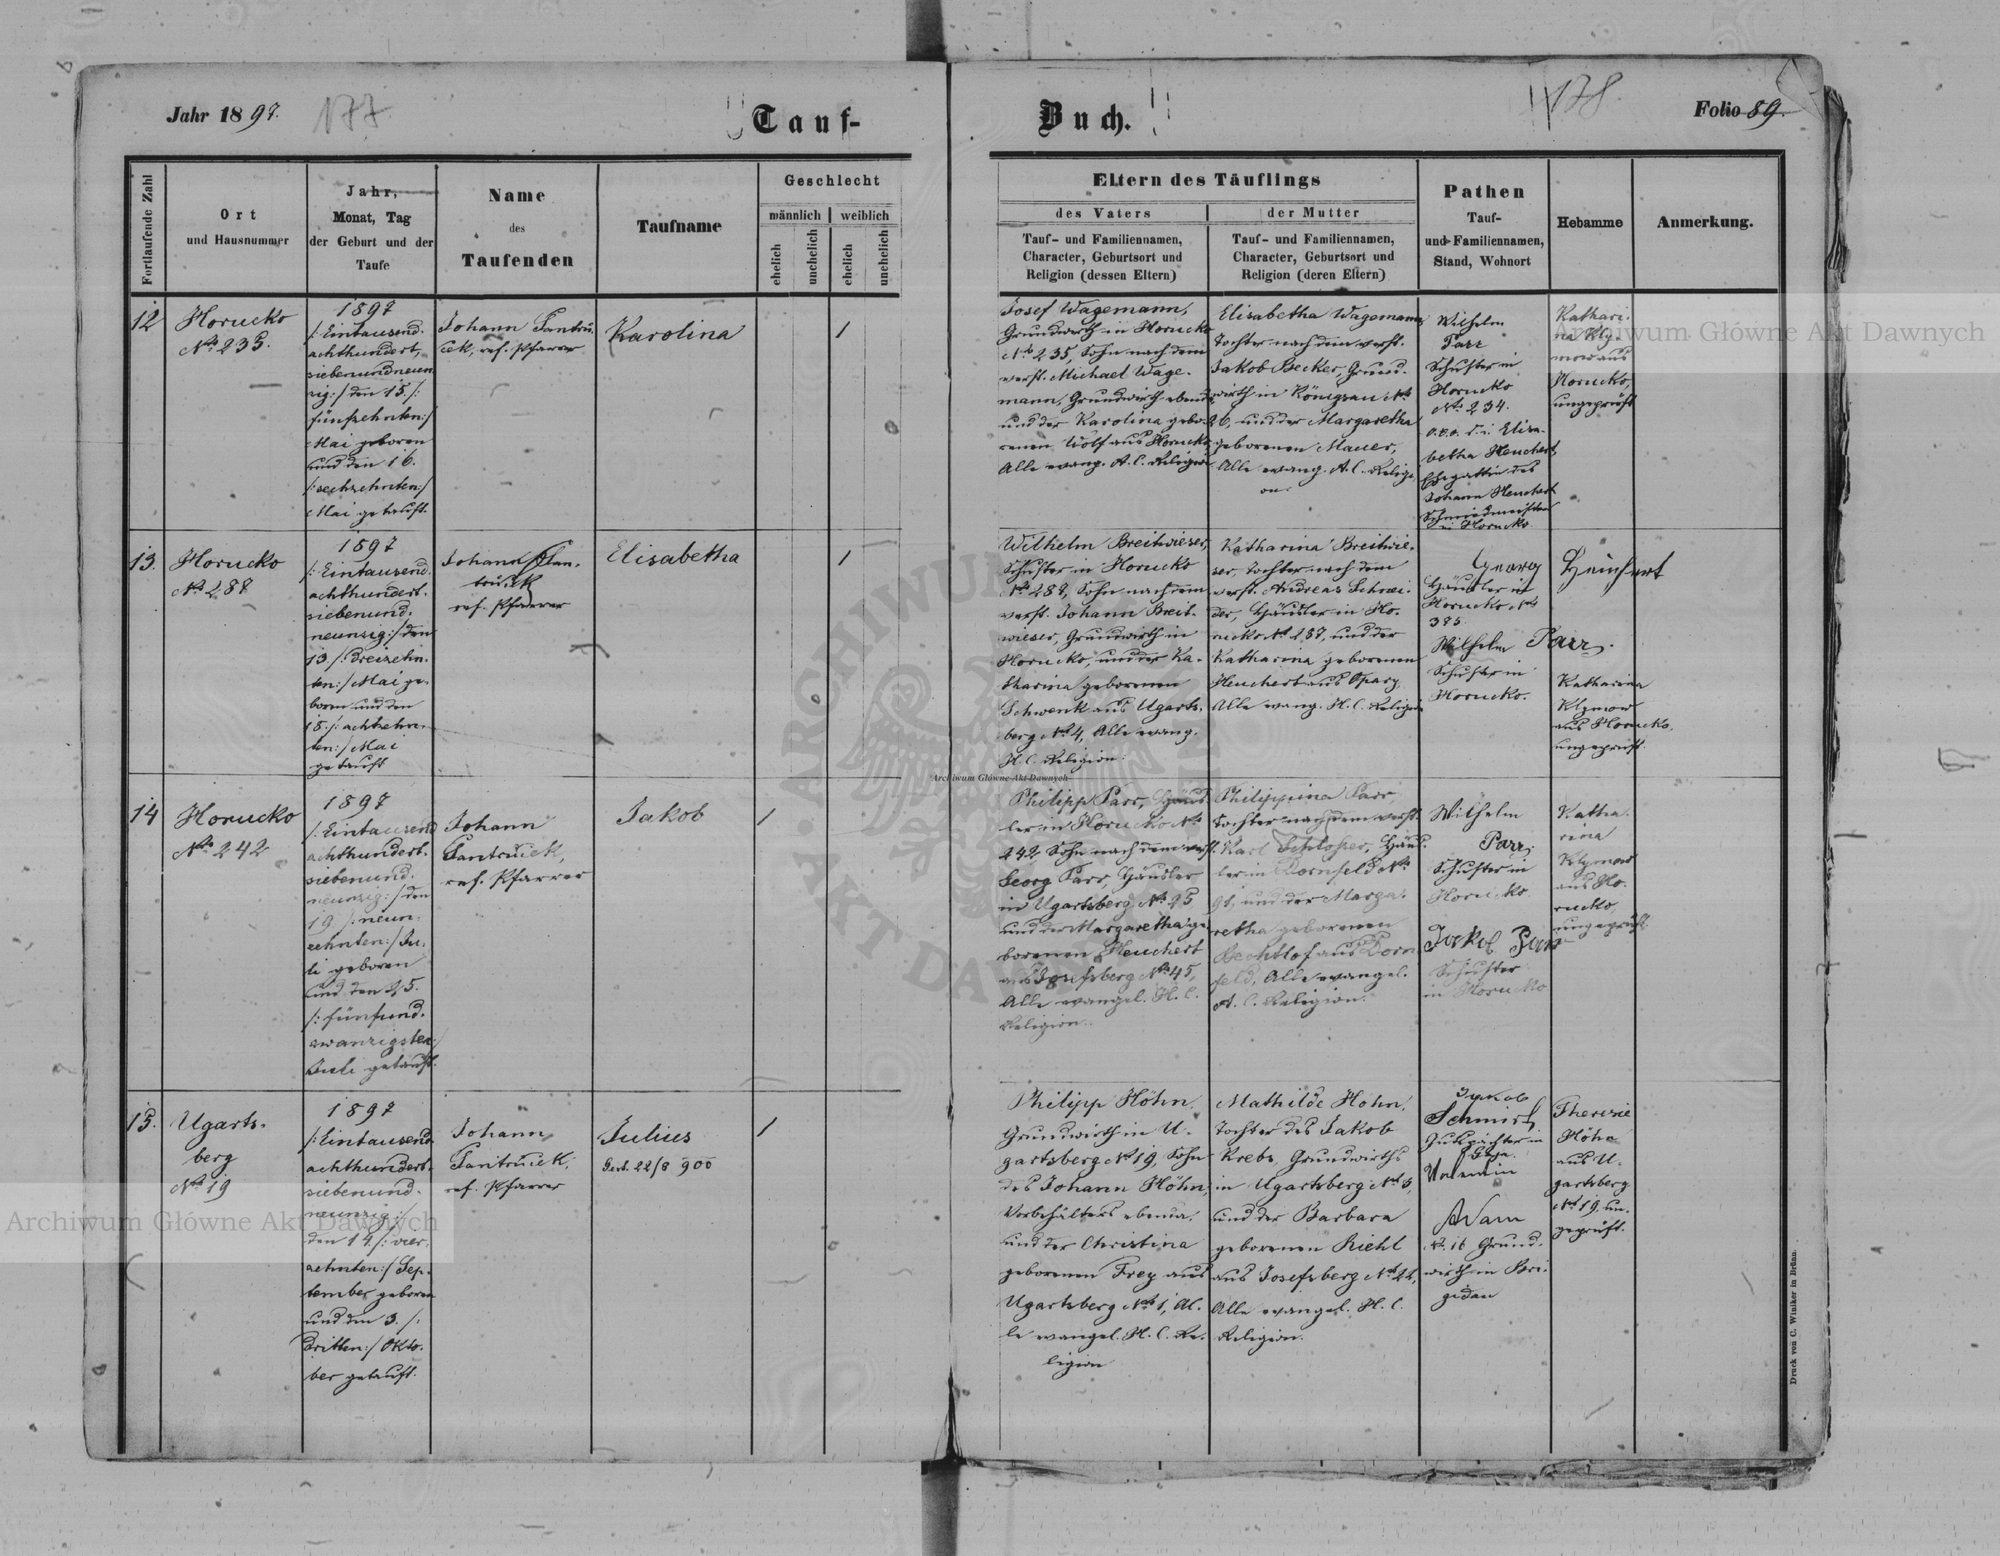 Jahr 1897.
177.
Tauf-
Buch.
178.
Folio 89.
Fortlaufende Zahl
Ort
und Hausnummer
Jahr,
Monat, Tag
der Geburt und der
Taufe
Name
des
Taufenden
Taufname
Geschlecht
männlich
weiblich
ehelich
unehelich
ehelich
unehelich
Eltern des Täuflings
des Vaters
der Mutter
Tauf- und Familiennamen,
Character, Geburtsort und
Religion (dessen Eltern)
Tauf- und Familiennamen,
Character, Geburtsort und
Religion (deren Eltern)
Pathen
Tauf-
und Familiennamen,
Stand, Wohnort
Hebamme
Anmerkung.
12
Horucko
No 235.
1897
/: Eintausend.
achthundert,
siebenundneun
zig :/ den 15 /:
fünfzehnten :/
Mai geboren
und den 16.
/: sechzehnten :/
Mai getauft.
Johann Fantru,
ref. Pfarrer
Karolina
1
Josef Wagemann,
Grundwirth in Horucko
No 235, Sohn nach dem
verst. Michael Wage-
mann, Grundwirth ebenda
und der Karolina gebo-
renen Wolf aus Horucko
Alle evang. A. C. Religion
Elisabetha Wagemann,
Tochter nach dem verst.
Jakob Becker, Grund-
wirth in Königsau No
26, und der Margaretha
geborenen Mauer,
Alle evang. A. C. Religi-
on
Wilhelm
Parr
Schuster in
Horucko
No 234.
Elisa-
betha Heuchert
Ehegattin des
Johann Heuchert
Schmiedmeister
in Horucko
Kathari-
na Kly-
mow aus
Horucko,
ungeprüft
13.
Horucko
No 287
1897
/: Eintausend.
achthundert.
siebenund.
neunzig :/ den
13 /: dreizehn-
ten :/ Mai ge-
boren und den
18. /: achtzehn-
ten :/ Mai
getauft
Johann
ref. Pfarrer
Elisabetha
1
Wilhelm Breitwieser,
Schuster in Horucko
No 287, Sohn nach dem
verst. Johann Breit-
wieser, Grundwirth in
Horucko, und der Ka-
tharina geborenen
Schwenk aus Ugarts-
berg No 4, Alle evang.
H. C. Religion.
Katharina Breitwie-
ser, Tochter nach dem
verst. Andreas Schnei-
der, Häusler in Ho-
rucko No 137, und der
Katharina geborenen
Heuchert aus Opary
Alle evang. H. C. Religion
Georg Heuchert
Häusler in
Horucko, No
Wilhelm Parr.
Schuster in
Horucko.
Katharina
Klymow
aus Horucko,
ungeprüft.
14
Horucko
No 242
1897
/: Eintausend
achthundert.
siebenund.
neunzig :/ den
19 /: neun-
zehnten :/ Ju-
li geboren
und den 25.
/: fünfund.
zwanzigsten :/
Juli getauft.
Johann
Fantruček,
ref. Pfarrer
Jakob
1
Philipp Parr, Häus-
ler in Horucko No
242 Sohn nach dem verst.
Georg Parr, Häusler
in Ugartsberg No 25
und der Margaretha ge-
borenen Heuchert
aus Josefsberg No 45,
Alle evangel. H. C.
Religion.
Philippina Parr,
Tochter nach dem verst.
Karl Schlosser, Häus-
ler in Dornfeld No
91, und der Marga-
retha geborenen
Bechtlof aus Dorn
feld, Alle evangel.
A. C. Religion.
Wilhelm
Parr.
Schuster in
Horucko
Jakob Parr
Schuster
in Horucko
Katha-
rina
Klymow
aus Ho-
rucko,
ungeprüft.
15.
Ugarts-
berg
No 19
1897
/: Eintausend
achthundert.
siebenund.
neunzig :/
den 14 /: vier-
zehnten :/ Sep-
tember geboren
und den 3. /:
dritten :/ Okto-
ber getauft.
Johann
Fantruček,
ref. Pfarrer
Julius
Gest. 22/8 900
1
Philipp Höhn,
Grundwirth in U-
gartsberg No 19, Sohn
des Johann Höhn,
Vorbehälters ebenda,
und der Christina
geborenen Frey aus
Ugartsberg No 1, Al-
le evangel. H. C. Re-
ligion
Mathilde Hohn,
Tochter des Jakob
Krebs, Grundwirths
in Ugartsberg No 3,
und der Barbara
geborenen Kiehl
aus Josefsberg No 22,
Alle evangel. H. C.
Religion.
Jakob
Schmidt
Gutspächter in
Valentin
Adam
No 16 Grund-
wirth in Bri-
gidau
Theresie
Höhn
aus U-
gartsberg
No 19, un-
geprüft.
Druck von C. Winiker in Brünn.
Archiwum Główne Akt Dawnych
Archiwum Główne Akt Dawnych
Archiwum Główne Akt Dawnych
ARCHIWUM
AKT DAWNYCH